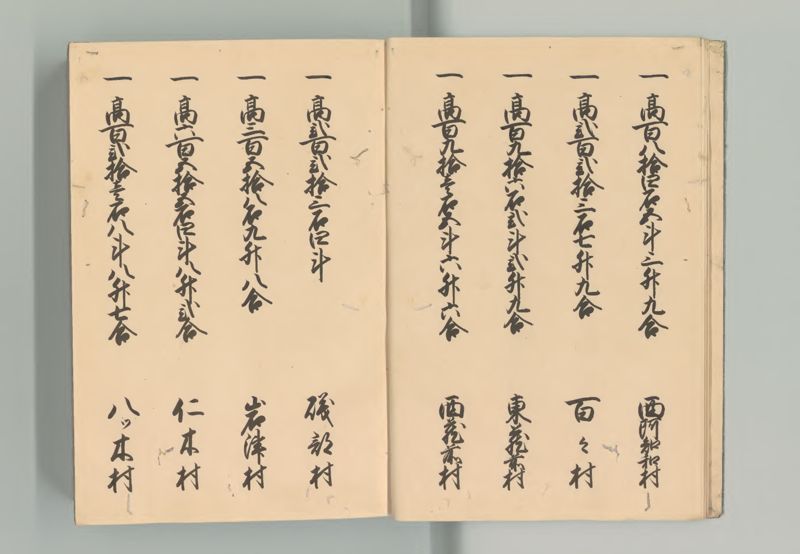 一高百八拾四石五斗三升九合 西阿知和村
一高弐百弐拾三石七升九合 百々村
一高百九拾六石弐斗弐升九合 東蔵前村
一高百九拾壱石五斗六升六合 西蔵前村
一高弐百弐拾三石四斗 磯部村
一高三百五拾八石九升八合 岩津村
一高六百五拾五石四斗八升弐合 仁木村
一高百弐拾壱石八斗八升七合 八ツ木村